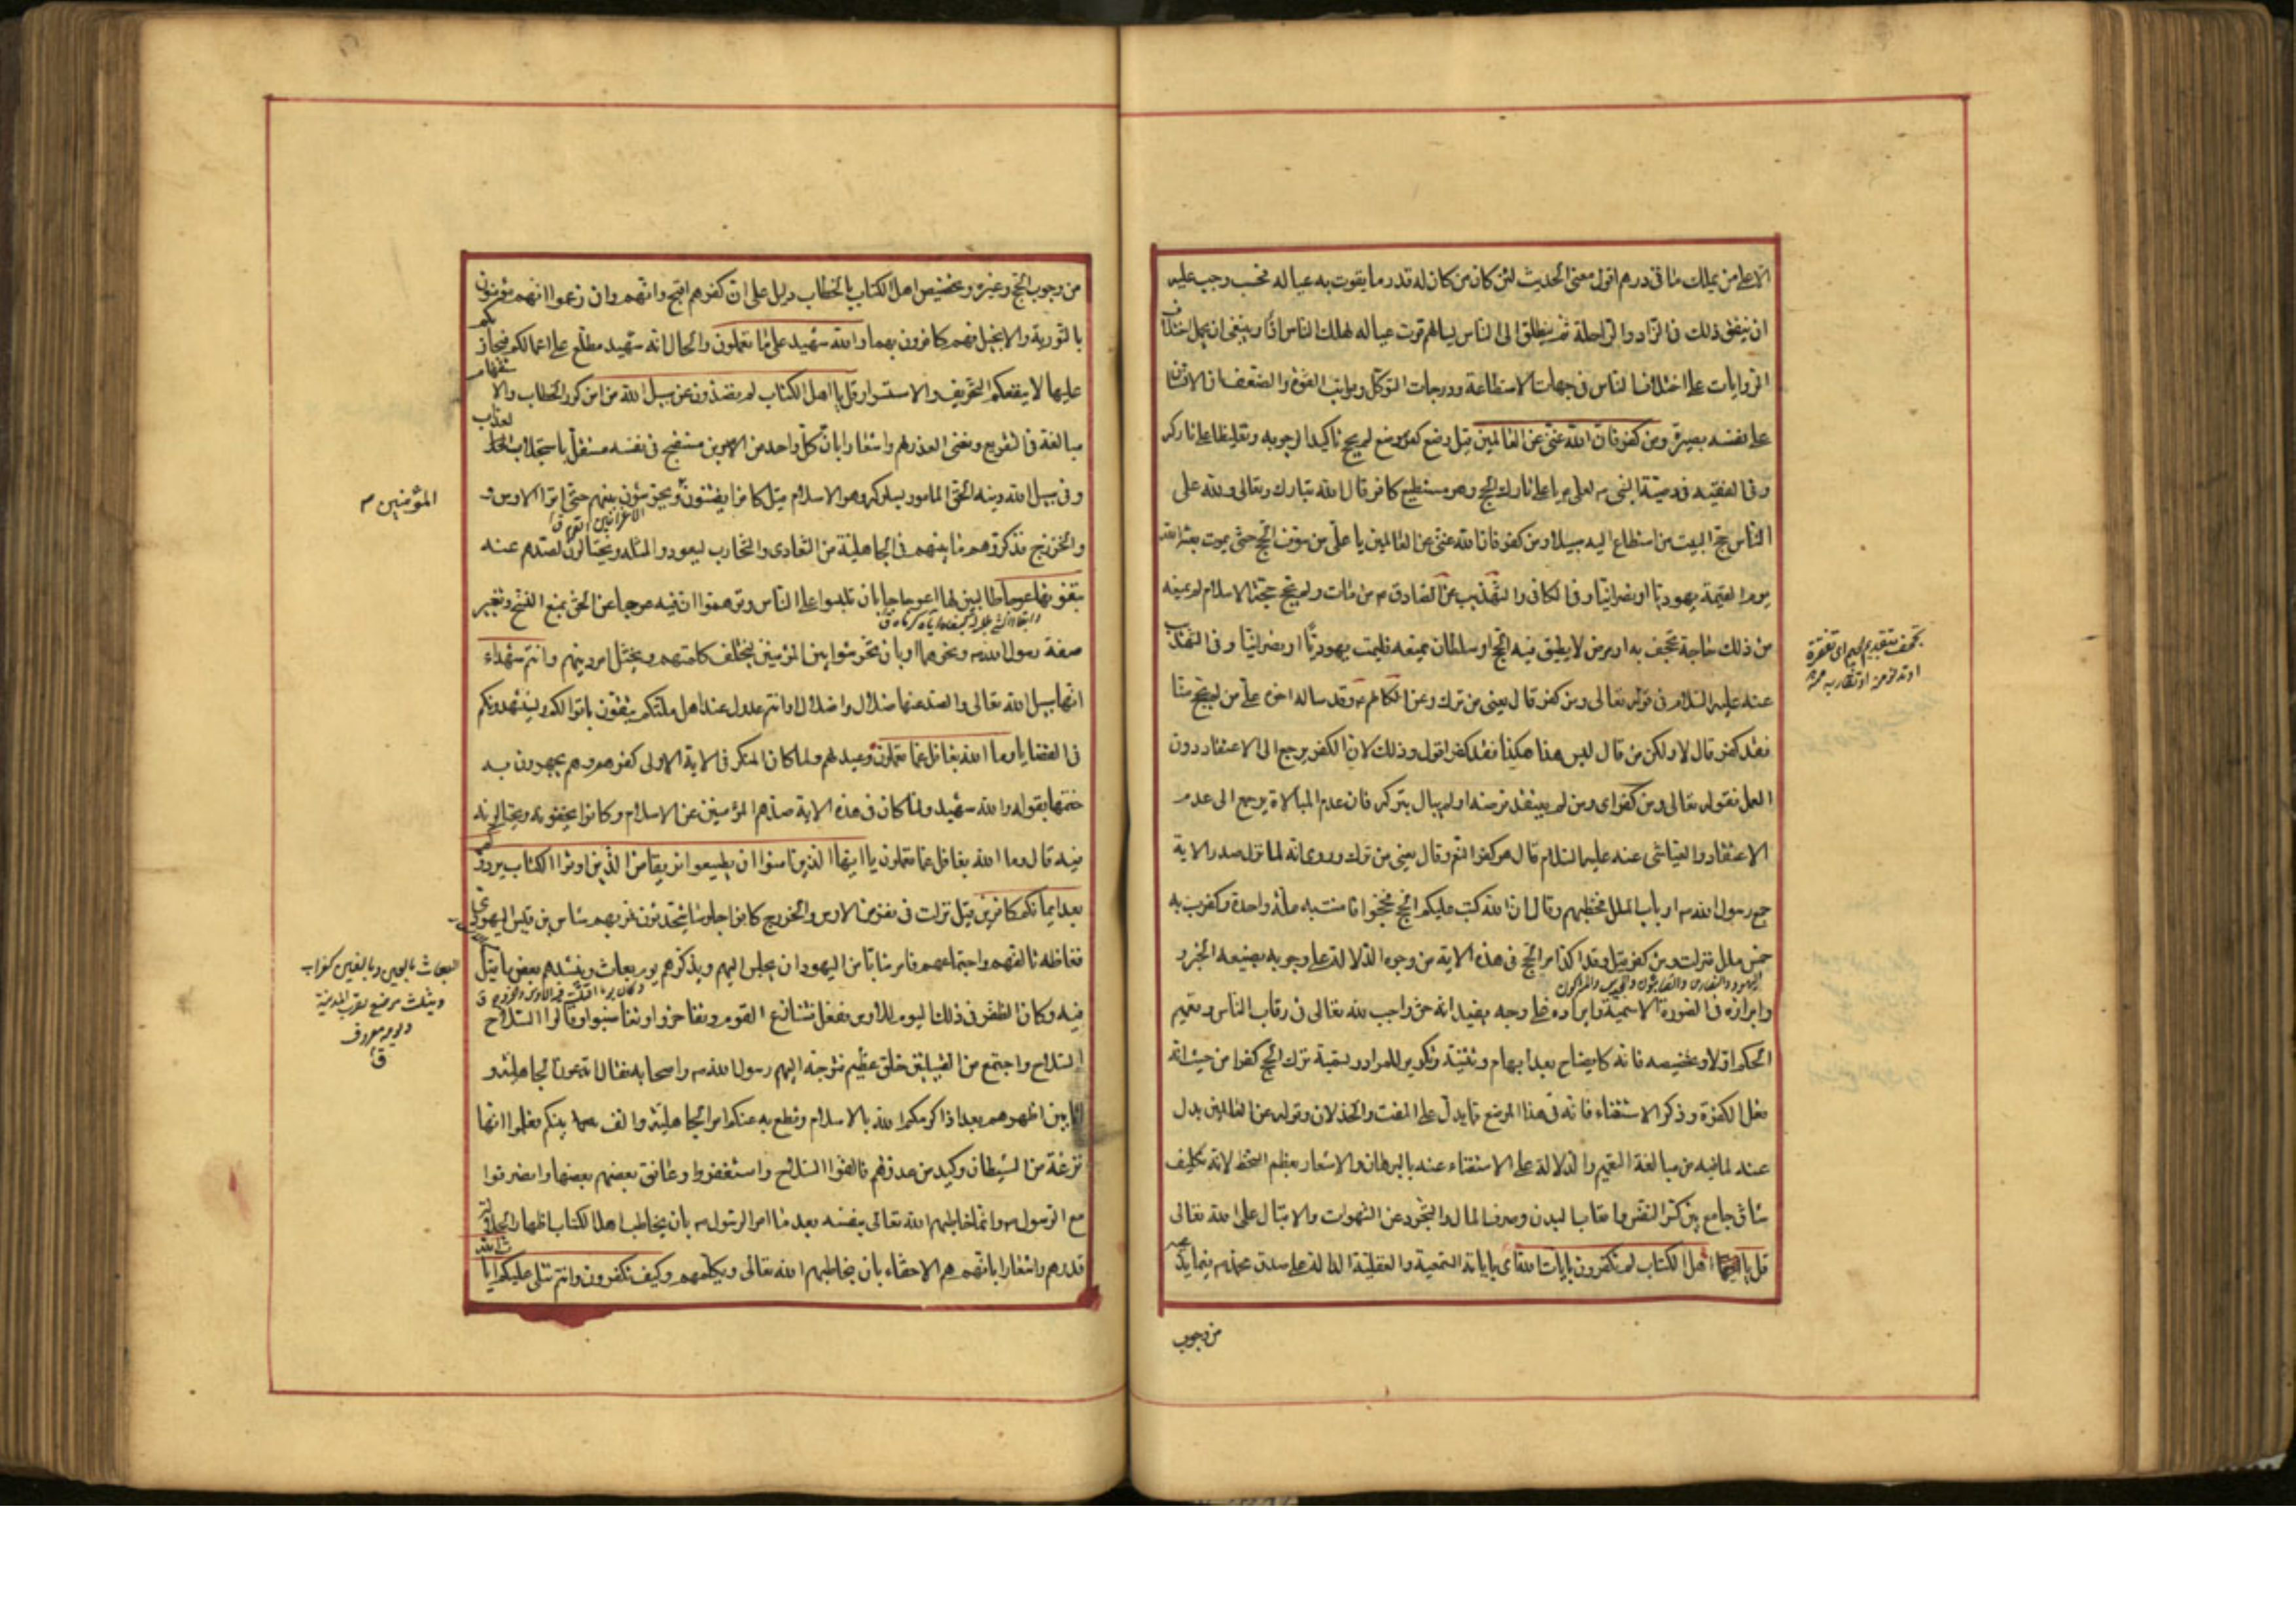 الا على من يملك مائتى درهم اقول معنى الحديث لئن كان من كان له قدر ما يقوت به عياله فحسب وجب عليه
ان ينفق ذلك فى الزاد والراحلة ثم ينطلق الى الناس يسالهم قوت عياله لهلك الناس اذا وينبغى ان يحمل اختلاف
الروايات على اختلاف الناس فى جهات الاستطاعة ودرجات التوكل ومراتب القوة والضعف فان الانسان
على نفسه بصيرة ومن كفر فان الله غنى عن العالمين قيل وضع كفر موضع لم يحج تاكيدا لوجوبه وتغليظا على تاركه
وفى الفقيه فى وصية النبى ص لعلى يا على تارك الحج وهو مستطيع كافر قال الله تبارك وتعالى ولله على
الناس حج البيت من استطاع اليه سبيلا ومن كفر فان الله غنى عن العالمين يا على من سوف الحج حتى يموت بعثه الله
يوم القيمة يهوديا او نصرانيا وفى الكافى والتهذيب عن الصادق م من مات ولم يحج حجة الاسلام لم يمنعه
من ذلك حاجة تجحف به او مرض لا يطيق فيه الحج او سلطان يمنعه فليمت يهوديا او نصرانيا وفى التهذيب
عنه عليه السلام فى قوله تعالى ومن كفر قال يعنى من ترك وعن الكاظم م وقد ساله اخوه على من لم يحج منا
فقد كفر قال لا ولكن من قال ليس هذا هكذا فقد كفر اقول وذلك لان الكفر يرجع الى الاعتقاد دون
العمل فقوله تعالى ومن كفر اى ومن لم يعتقد فرضه او لم يبال بتركه فان عدم المبالاة يرجع الى عدم
الاعتقاد والعياشى عنه عليه السلام قال هو كفر النعم وقال يعنى من ترك وروى انه لما نزل صدر الاية
جمع رسول الله ص ارباب الملل فخطبهم وقال ان الله كتب عليكم الحج فحجوا فامنت به ملة واحدة وكفرت به
خمس ملل فنزلت ومن كفر قيل وقد اكد امر الحج فى هذه الاية من وجوه الدلالة على وجوبه بصيغة الخبر و
اليهود والنصارى والصابئون والمجوس والمشركون
وابرازه فى الصورة الاسمية وايراده على وجه يفيد انه حق واجب لله تعالى فى رقاب الناس وتعميم
الحكم اولا وتخصيصه فانه كايضاح بعد ابهام وتثنية وتكرير للمراد وتسمية ترك الحج كفرا من حيث انه
فعل الكفرة وذكر الاستغناء فانه فى هذا الموضع مما يدل على المقت والخذلان وقوله عن العالمين بدل
عنه لما فيه من مبالغة التعميم والدلالة على الاستغناء عنه بالبرهان والاشعار بعظم السخط لانه تكليف
شاق جامع بين كسر النفس واتعاب البدن وصرف المال والتجرد عن الشهوات والاقبال على الله تعالى
قل يا اهل الكتاب لم تكفرون بايات الله اى باياته السمعية والعقلية الدالة على صدق محمد ص فيما يدعيه
من وجوب
تجحف بتقديم الجيم اى تفقره
من وجوب الحج وغيره وتخصيص اهل الكتاب بالخطاب دليل على ان كفرهم اقبح وانهم وان زعموا انهم مؤمنون
بالتورية والانجيل فهم كافرون بهما والله شهيد على ما تعملون والحال انه شهيد مطلع على اعمالكم فيجازيكم
عليها لا ينفعكم التحريف والاستسرار قل يا اهل الكتاب لم تصدون عن سبيل الله من امن كرر الخطاب والاستفهام
مبالغة فى التقريع ونفى العذر لهم واشعارا بان كل واحد من الامرين مستقبح فى نفسه مستقل باستجلاب العذاب
وفى سبيل الله دينه الحق المامور بسلوكه وهو الاسلام قيل كانوا يفتنون ويحرشون بينهم حتى اتوا الاوس و
المؤمنين م
والخزرج فذكروهم ما بينهم فى الجاهلية من التعادى والتحارب ليعودوا لمثله ويحتالون لصدهم عنه
تبغونها عوجا طالبين لها اعوجاجا بان تلبسوا على الناس وتوهموا ان فيه عوجا عن الحق بمنع النسخ وتغيير
صفة رسول الله ص ونحوهما او بان تحرشوا بين المؤمنين لتختلف كلمتهم ويختل امر دينهم وانتم شهداء
انها سبيل الله تعالى والصد عنها ضلال واضلال او انتم عدول عند اهل ملتكم يثقون باقوالكم ويستشهدونكم
فى القضايا وما الله بغافل عما تعملون وعيد لهم ولما كان المنكر فى الاية الاولى كفرهم وهم يجهرون به
ختمها بقوله والله شهيد ولما كان فى هذه الاية صدهم المؤمنين عن الاسلام وكانوا يخفونه ويحتالون
فيه قال وما الله بغافل عما تعملون يا ايها الذين امنوا ان تطيعوا فريقا من الذين اوتوا الكتاب يردوكم
بعد ايمانكم كافرين قيل نزلت فى نفر من الاوس والخزرج كانوا جلوسا يتحدثون فمر بهم شاس بن قيس اليهودى
فغاظه تالفهم واجتماعهم فامر شابا من اليهود ان يجلس اليهم ويذكرهم يوم بعاث وينشدهم بعض ما قيل
البعاث بالعين وبالغين كغراب
ويثلث موضع بقرب المدينة
ويومه معروف
ق
فيه وكان الظفر فى ذلك اليوم للاوس ففعل فتنازع القوم وتفاخروا وتغاضبوا وقالوا السلاح
السلاح واجتمع من القبيلتين خلق عظيم فتوجه اليهم رسول الله ص واصحابه فقال اتدعون الجاهلية و
انا بين اظهركم بعد اذ اكرمكم الله بالاسلام وقطع به عنكم امر الجاهلية والف بينكم فعلموا انها
نزغة من الشيطان وكيد من عدوهم فالقوا السلاح واستغفروا وعانق بعضهم بعضا وانصرفوا
مع الرسول ص وانما خاطبهم الله تعالى بنفسه بعد ما امر الرسول ص بان يخاطب اهل الكتاب اظهارا لجلالة
قدرهم واشعارا بانهم هم الاحقاء بان يخاطبهم الله تعالى ويكلمهم وكيف تكفرون وانتم تتلى عليكم ايات الله